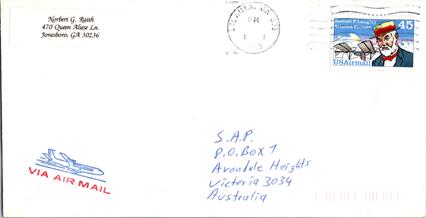 Norbert G. Raith
470 Queen Aliese Ln.
Jonesboro, GA 30236
ATLANTA, GA 303
PM
Samuel P. Langley
Aviation Pioneer
45
USAirmail
S.A.P.
P.O.Box 1
Avondale Heights
Victoria 3034
Australia
VIA AIR MAIL